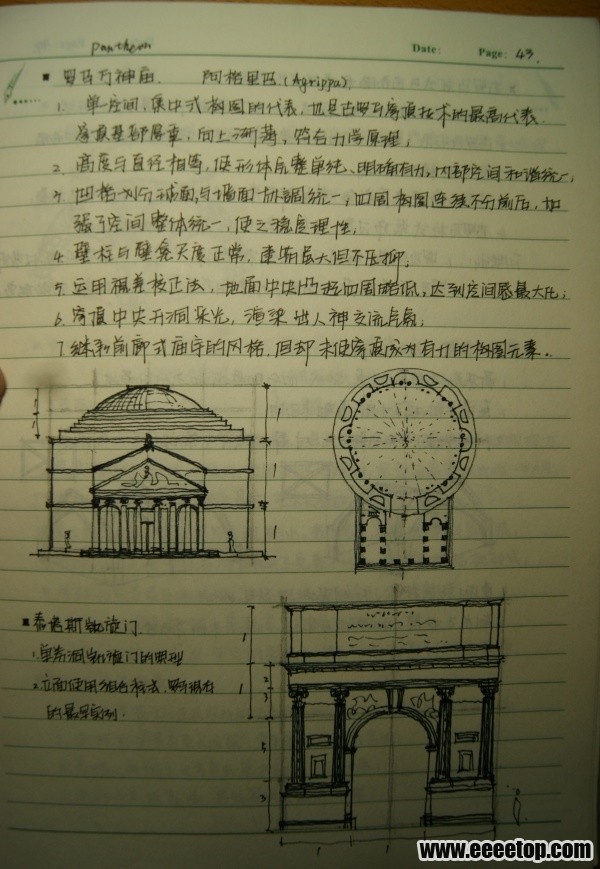 Pantheon
Date:
Page: 43.
■ 罗马万神庙 阿格里巴.(Agrippa).
1. 单空间,集中式构图的代表,也是古罗马穹顶技术的最高代表.
穹顶基部厚重,向上渐薄,符合力学原理;
2. 高度与直径相等,使形体完整单纯、明确有力,内部空间和谐统一;
3. 凹格划分球面,与墙面协调统一,四周构图连续不分前后,加
强了空间整体统一,使之稳定理性;
4. 壁柱与壁龛尺度正常,建筑虽大但不压抑;
5. 运用视差校正法,地面中央凸起四周略低,达到空间感最大化;
6. 穹顶中央开洞采光,渲染出人神交流气氛;
7. 继承前廊式庙宇的风格,但却未使穹顶成为有力的构图元素.
1
1
1
1
1
■ 泰塔斯凯旋门
1. 单券洞凯旋门的典型
2. 立面使用组合柱式,罗马现存
的最早实例.
1
1
2
3
5
3
1
1
1
www.eeeetop.com